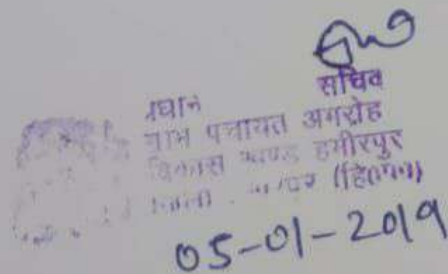 सचिव
प्रधान
ग्राम पंचायत अमरोह
विकास खण्ड हमीरपुर
(हि०प्र०)
05-01-2019